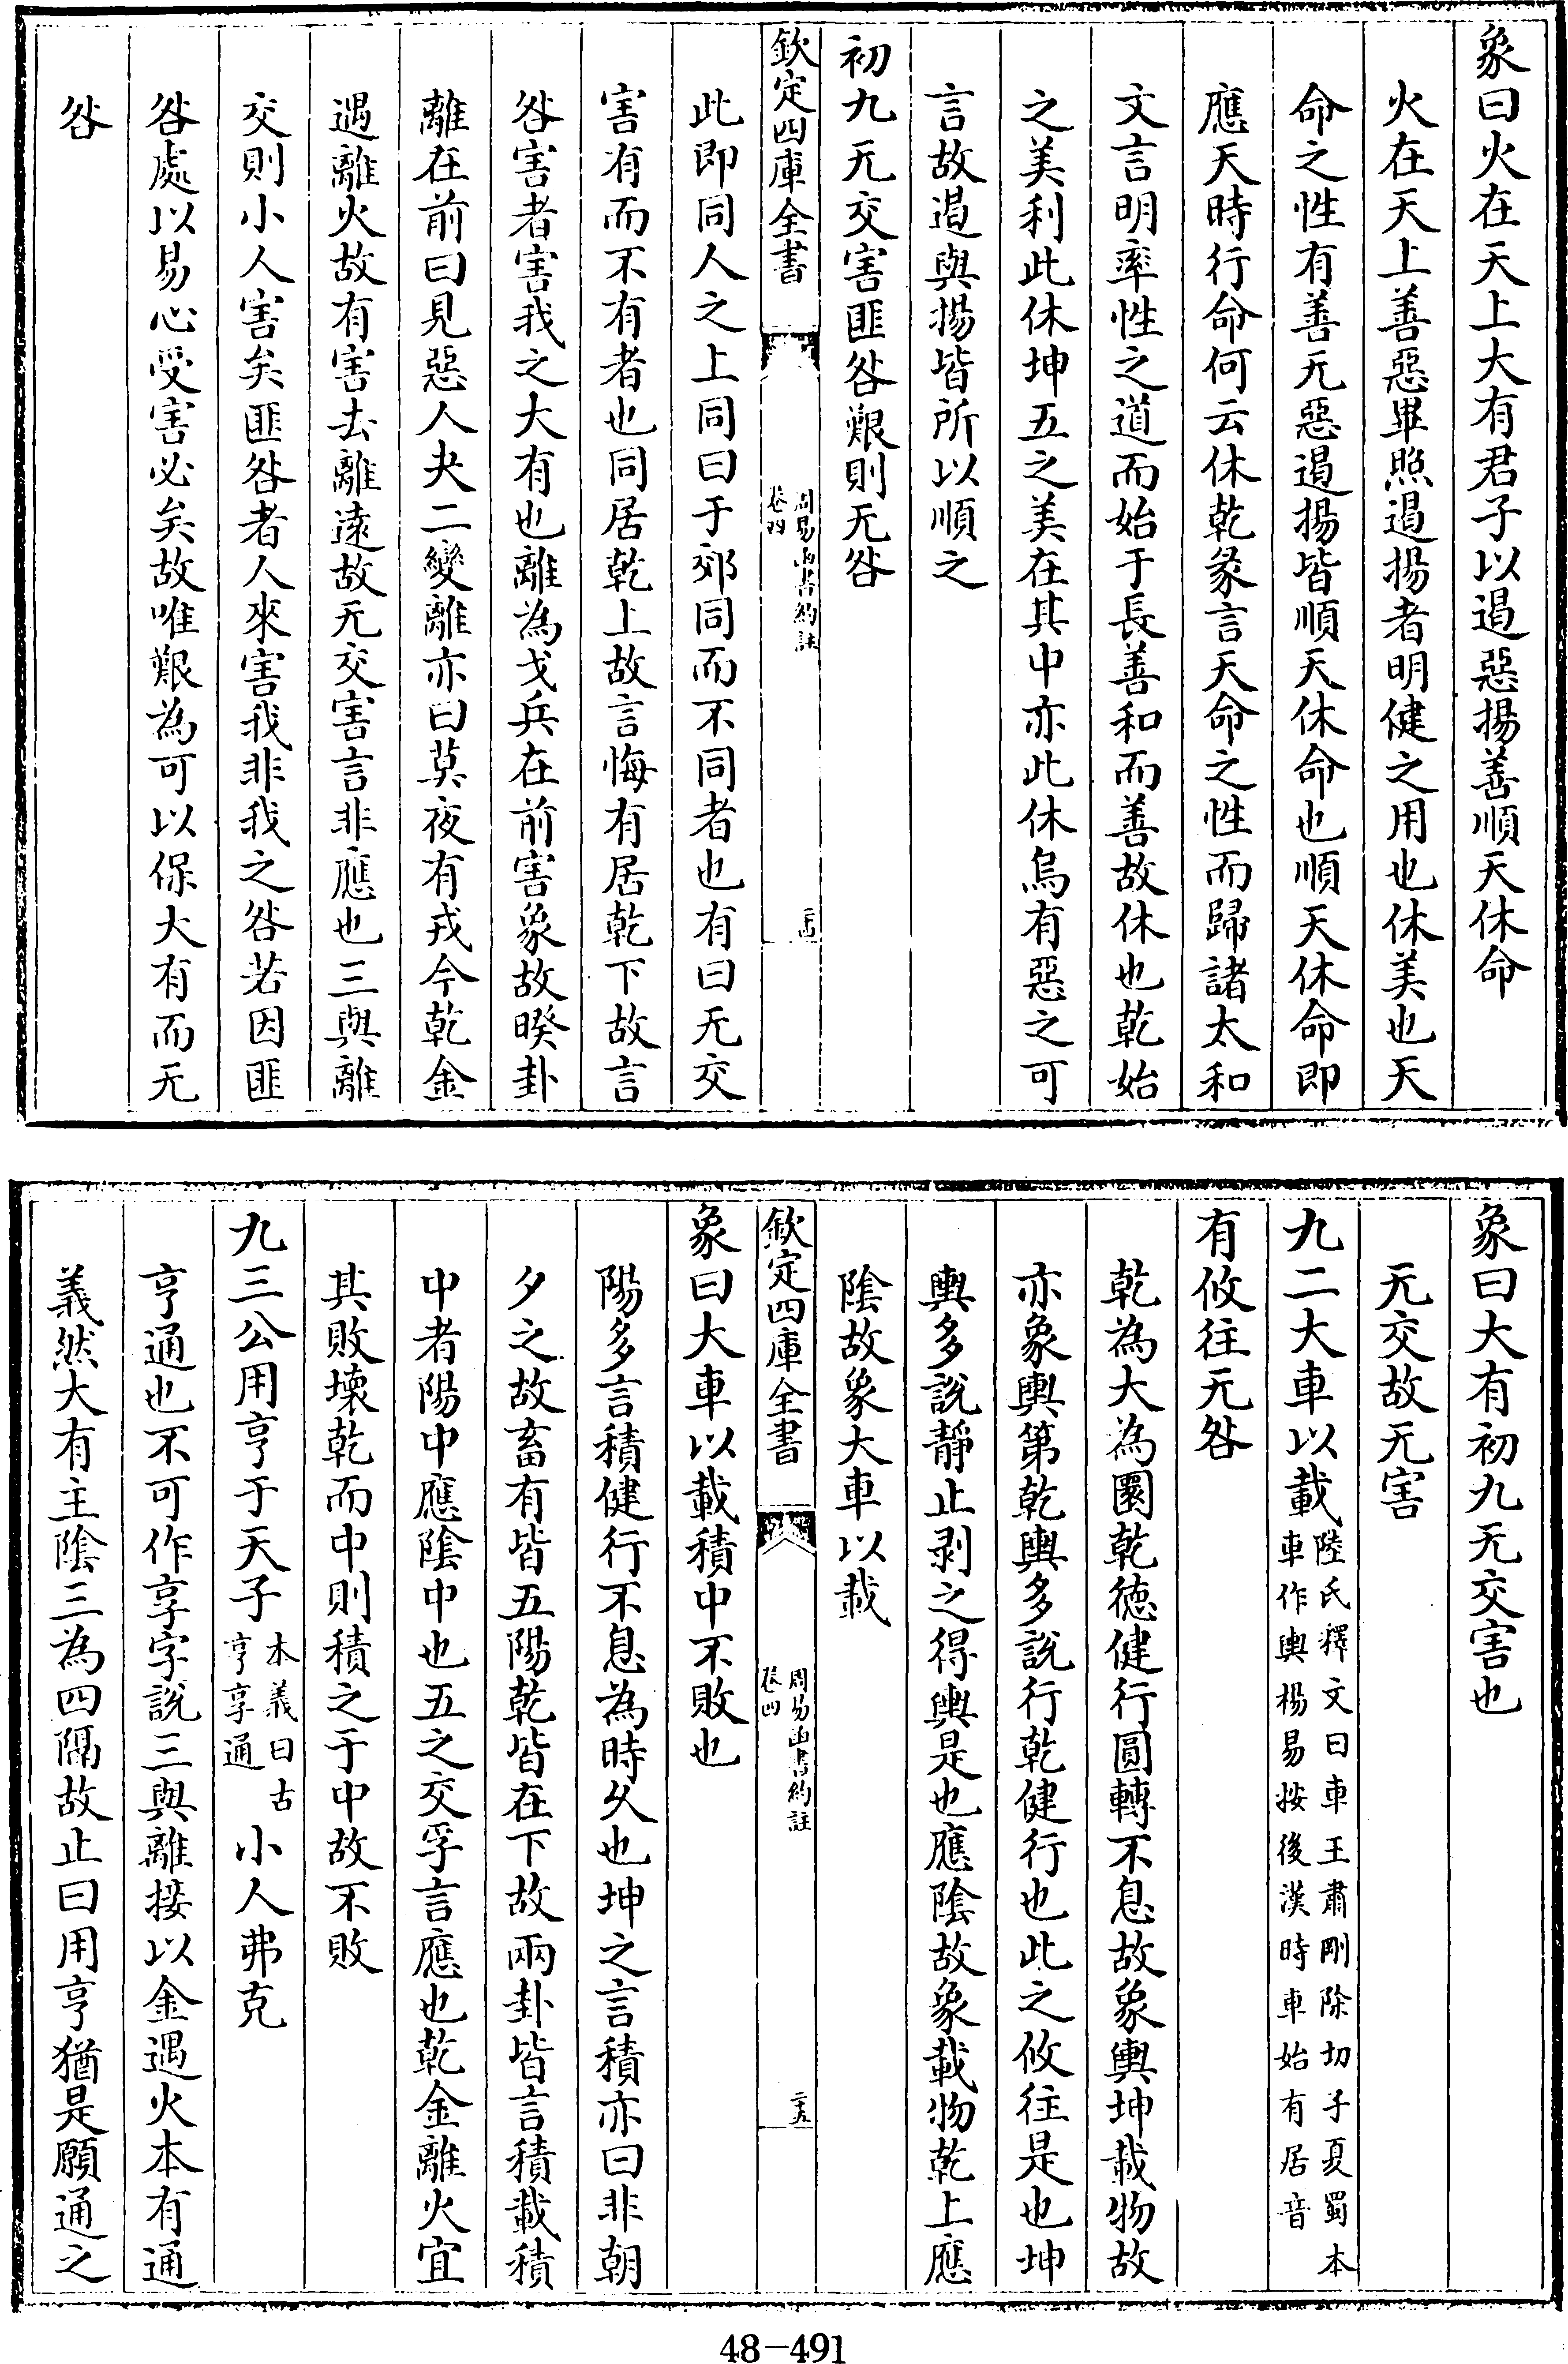 象曰火在天上大有君子以遏惡揚善順天休命
火在天上善惡畢照遏揚者明健之用也休美也天
命之性有善无惡遏揚皆順天休命也順天休命即
應天時行命何云休乾彖言天命之性而歸諸太和
文言明率性之道而始于長善和而善故休也乾始
之美利此休坤五之美在其中亦此休烏有惡之可
言故遏與揚皆所以順之
初九无交害匪咎艱則无咎
欽定四庫全書
周易函書約註
卷四
二十四
此即同人之上同曰于郊同而不同者也有曰无交
害有而不有者也同居乾上故言悔有居乾下故言
咎害者害我之大有也離為戈兵在前害象故暌卦
離在前曰見惡人夬二變離亦曰莫夜有戎今乾金
遇離火故有害去離遠故无交害言非應也三與離
交則小人害矣匪咎者人來害我非我之咎若因匪
咎處以易心受害必矣故唯艱為可以保大有而无
咎
象曰大有初九无交害也
无交故无害
九二大車以載陸氏釋文曰車王肅剛除切子夏蜀本
車作輿楊易按後漢時車始有居音
有攸往无咎
乾為大為圜乾德健行圓轉不息故象輿坤載物故
亦象輿第乾輿多說行乾健行也此之攸往是也坤
輿多說靜止剥之得輿是也應陰故象載物乾上應
陰故象大車以載
欽定四庫全書
周易函書約註
卷四
二十五
象曰大車以載積中不敗也
陽多言積健行不息為時久也坤之言積亦曰非朝
夕之故畜有皆五陽乾皆在下故兩卦皆言積載積
中者陽中應陰中也五之交孚言應也乾金離火宜
其敗壞乾而中則積之于中故不敗
九三公用亨于天子本義曰古亨享通小人弗克
亨通也不可作享字說三與離接以金遇火本有通
義然大有主陰三為四隔故止曰用亨猶是願通之
48-491